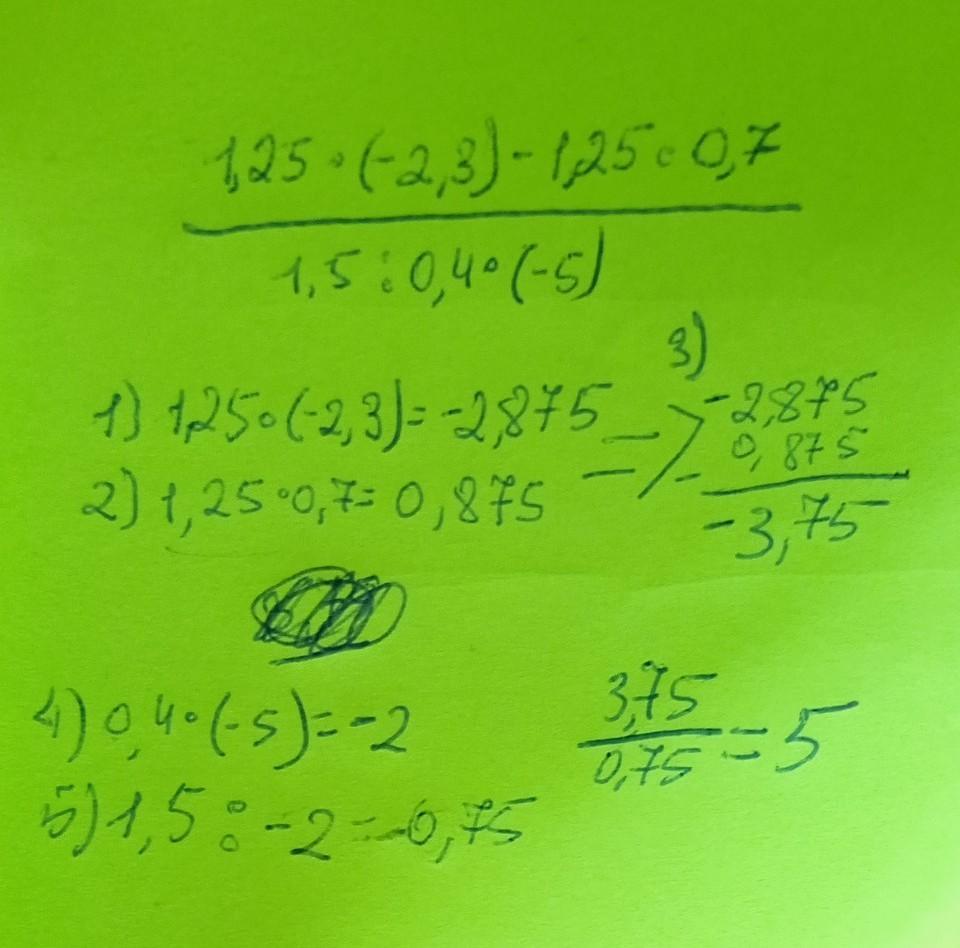 1,25·(-2,3)-1,25·0,7
1,5:0,4·(-5)
3)
1) 1,25·(-2,3)=-2,875 => -2,875
2) 1,25·0,7=0,875 - 0,875
-3,75
4) 0,4·(-5)=-2
3,75
0,75 =5
5) 1,5:-2=-0,75